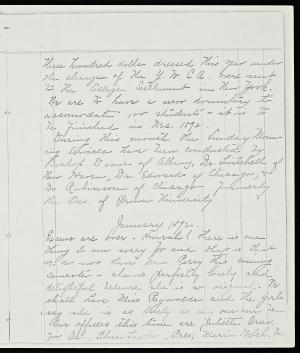 Three hundred dolls dressed this year under
the charge of the Y.W.C.A. were sent
to the College Settlement in New York.
We are to have a new dormitory to
accomodate 100 students - it is to
be finished in Dec. 1892.
During this month the Sunday Morn-
ing services have been conducted by
Bishop Doane of Albany, Dr.
New Haven, Dr. Edwards of Chicago, &
Dr. Robinson of Chicago formerly
the Pres. of Brown University.
January 1892.
Exams are over. Hurrah! There is one
thing I am sorry for and that is that
we do not have Miss Perry this coming
semester - she is perfectly lovely and
delightful because she is so original. We
shall have Miss Reynolds and the girls
say she is as lovely as any one can be.
Our officers this time are Juliette
for Pres., Vice Pres., Marian